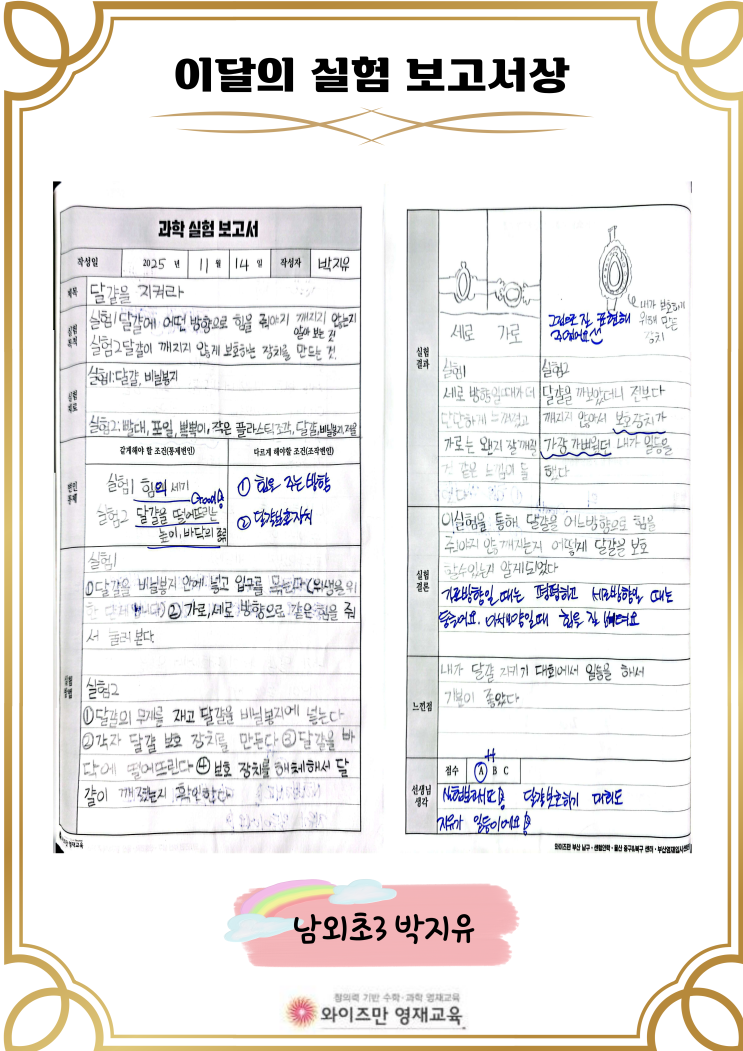 이달의 실험 보고서상
과학 실험 보고서
작성일 2025 년 11 월 14 일 작성자 박지유
제목 달걀을 지켜라
실험 목적
실험1 달걀에 어떤 방향으로 힘을 줘야지 깨지지 않는지
알아 보는 것
실험2 달걀이 깨지지 않게 보호하는 장치를 만드는 것.
실험 재료
실험1: 달걀, 비닐봉지
실험2: 빨대, 포일, 뽁뽁이, 작은 플라스틱조각, 달걀, 비닐봉지,
변인 통제
같게해야 할 조건(통제변인) 다르게 해야할 조건(조작변인)
실험1 힘의 세기
Good
실험2 달걀을 떨어뜨리는
높이, 바닥의 종류
① 힘을 주는 방향
② 달걀보호장치
실험 방법
실험1
①달걀을 비닐봉지 안에 넣고 입구를 묶는다(위생을 위
한 단계입니다) ② 가로, 세로 방향으로 같은 힘을 줘
서 눌러 본다
실험2
①달걀의 무게를 재고 달걀을 비닐봉지에 넣는다
②각자 달걀 보호 장치를 만든다 ③달걀을 바
닥에 떨어뜨린다 ④ 보호 장치를 해체해서 달
걀이 깨졌는지 확인한다
영재교육
실험 결과
세로 가로
그림으로 잘 표현해
주었어요
내가 보호하기
위해 만든
장치
실험1
세로 방향일때가 더
단단하게 느껴졌고
가로는 왠지 잘 깨질
것 같은 느낌이 들
었다
실험2
달걀을 까보았더니 전보다
깨지지 않아서 보호장치가
가장 가벼웠던 내가 일등을
했다
실험 결론
이실험을 통해 달걀을 어느방향으로 힘을
줘야지 안 깨지는지 어떻게 달걀을 보호
할수있는지 알게되었다
가로방향일 때는 평평하고 세로방향일 때는
둥글어요. 아치모양일때 힘을 잘 버텨요
느낀점
내가 달걀 지키기 대회에서 일등을 해서
기분이 좋았다
선생님 생각
점수 A B C
H
달걀보호하기 대회도
지유가 일등이에요
와이즈만 부산 남구・센텀언택・울산 중구&북구 센터・부산영재입시센터
남외초3 박지유
창의력 기반 수학・과학 영재교육
와이즈만 영재교육